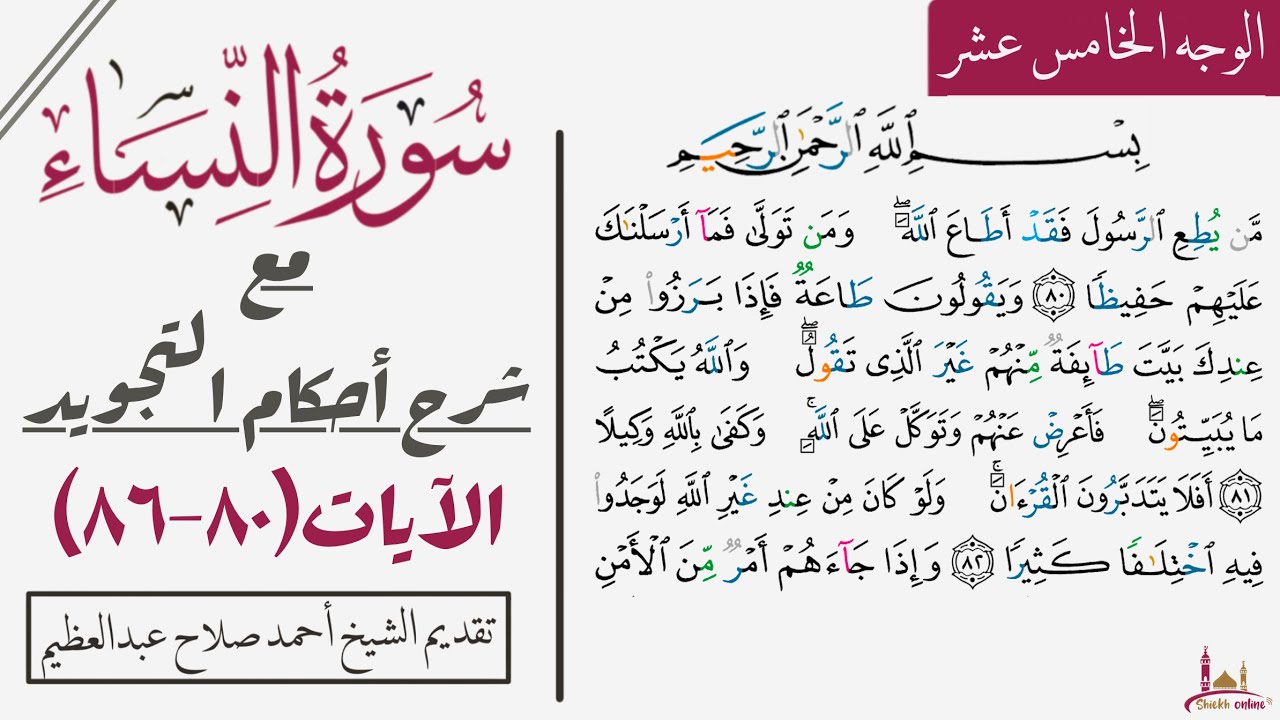 الوجه الخامس عشر
سُورَةُ النِّسَاءِ
مع
شرح أحكام التجويد
الآيات (٨٠-٨٦)
تقديم الشيخ أحمد صلاح عبدالعظيم
بِسْمِ ٱللَّهِ ٱلرَّحْمَٰنِ ٱلرَّحِيمِ
مَّن يُطِعِ ٱلرَّسُولَ فَقَدْ أَطَاعَ ٱللَّهَۖ وَمَن تَوَلَّىٰ فَمَآ أَرْسَلْنَٰكَ
عَلَيْهِمْ حَفِيظًا ٨٠ وَيَقُولُونَ طَاعَةٌ فَإِذَا بَرَزُوا۟ مِنْ
عِندِكَ بَيَّتَ طَآئِفَةٌ مِّنْهُمْ غَيْرَ ٱلَّذِى تَقُولُۖ وَٱللَّهُ يَكْتُبُ
مَا يُبَيِّتُونَۖ فَأَعْرِضْ عَنْهُمْ وَتَوَكَّلْ عَلَى ٱللَّهِۚ وَكَفَىٰ بِٱللَّهِ وَكِيلًا
٨١ أَفَلَا يَتَدَبَّرُونَ ٱلْقُرْءَانَۚ وَلَوْ كَانَ مِنْ عِندِ غَيْرِ ٱللَّهِ لَوَجَدُوا۟
فِيهِ ٱخْتِلَٰفًا كَثِيرًا ٨٢ وَإِذَا جَآءَهُمْ أَمْرٌ مِّنَ ٱلْأَمْنِ
Shiekh online